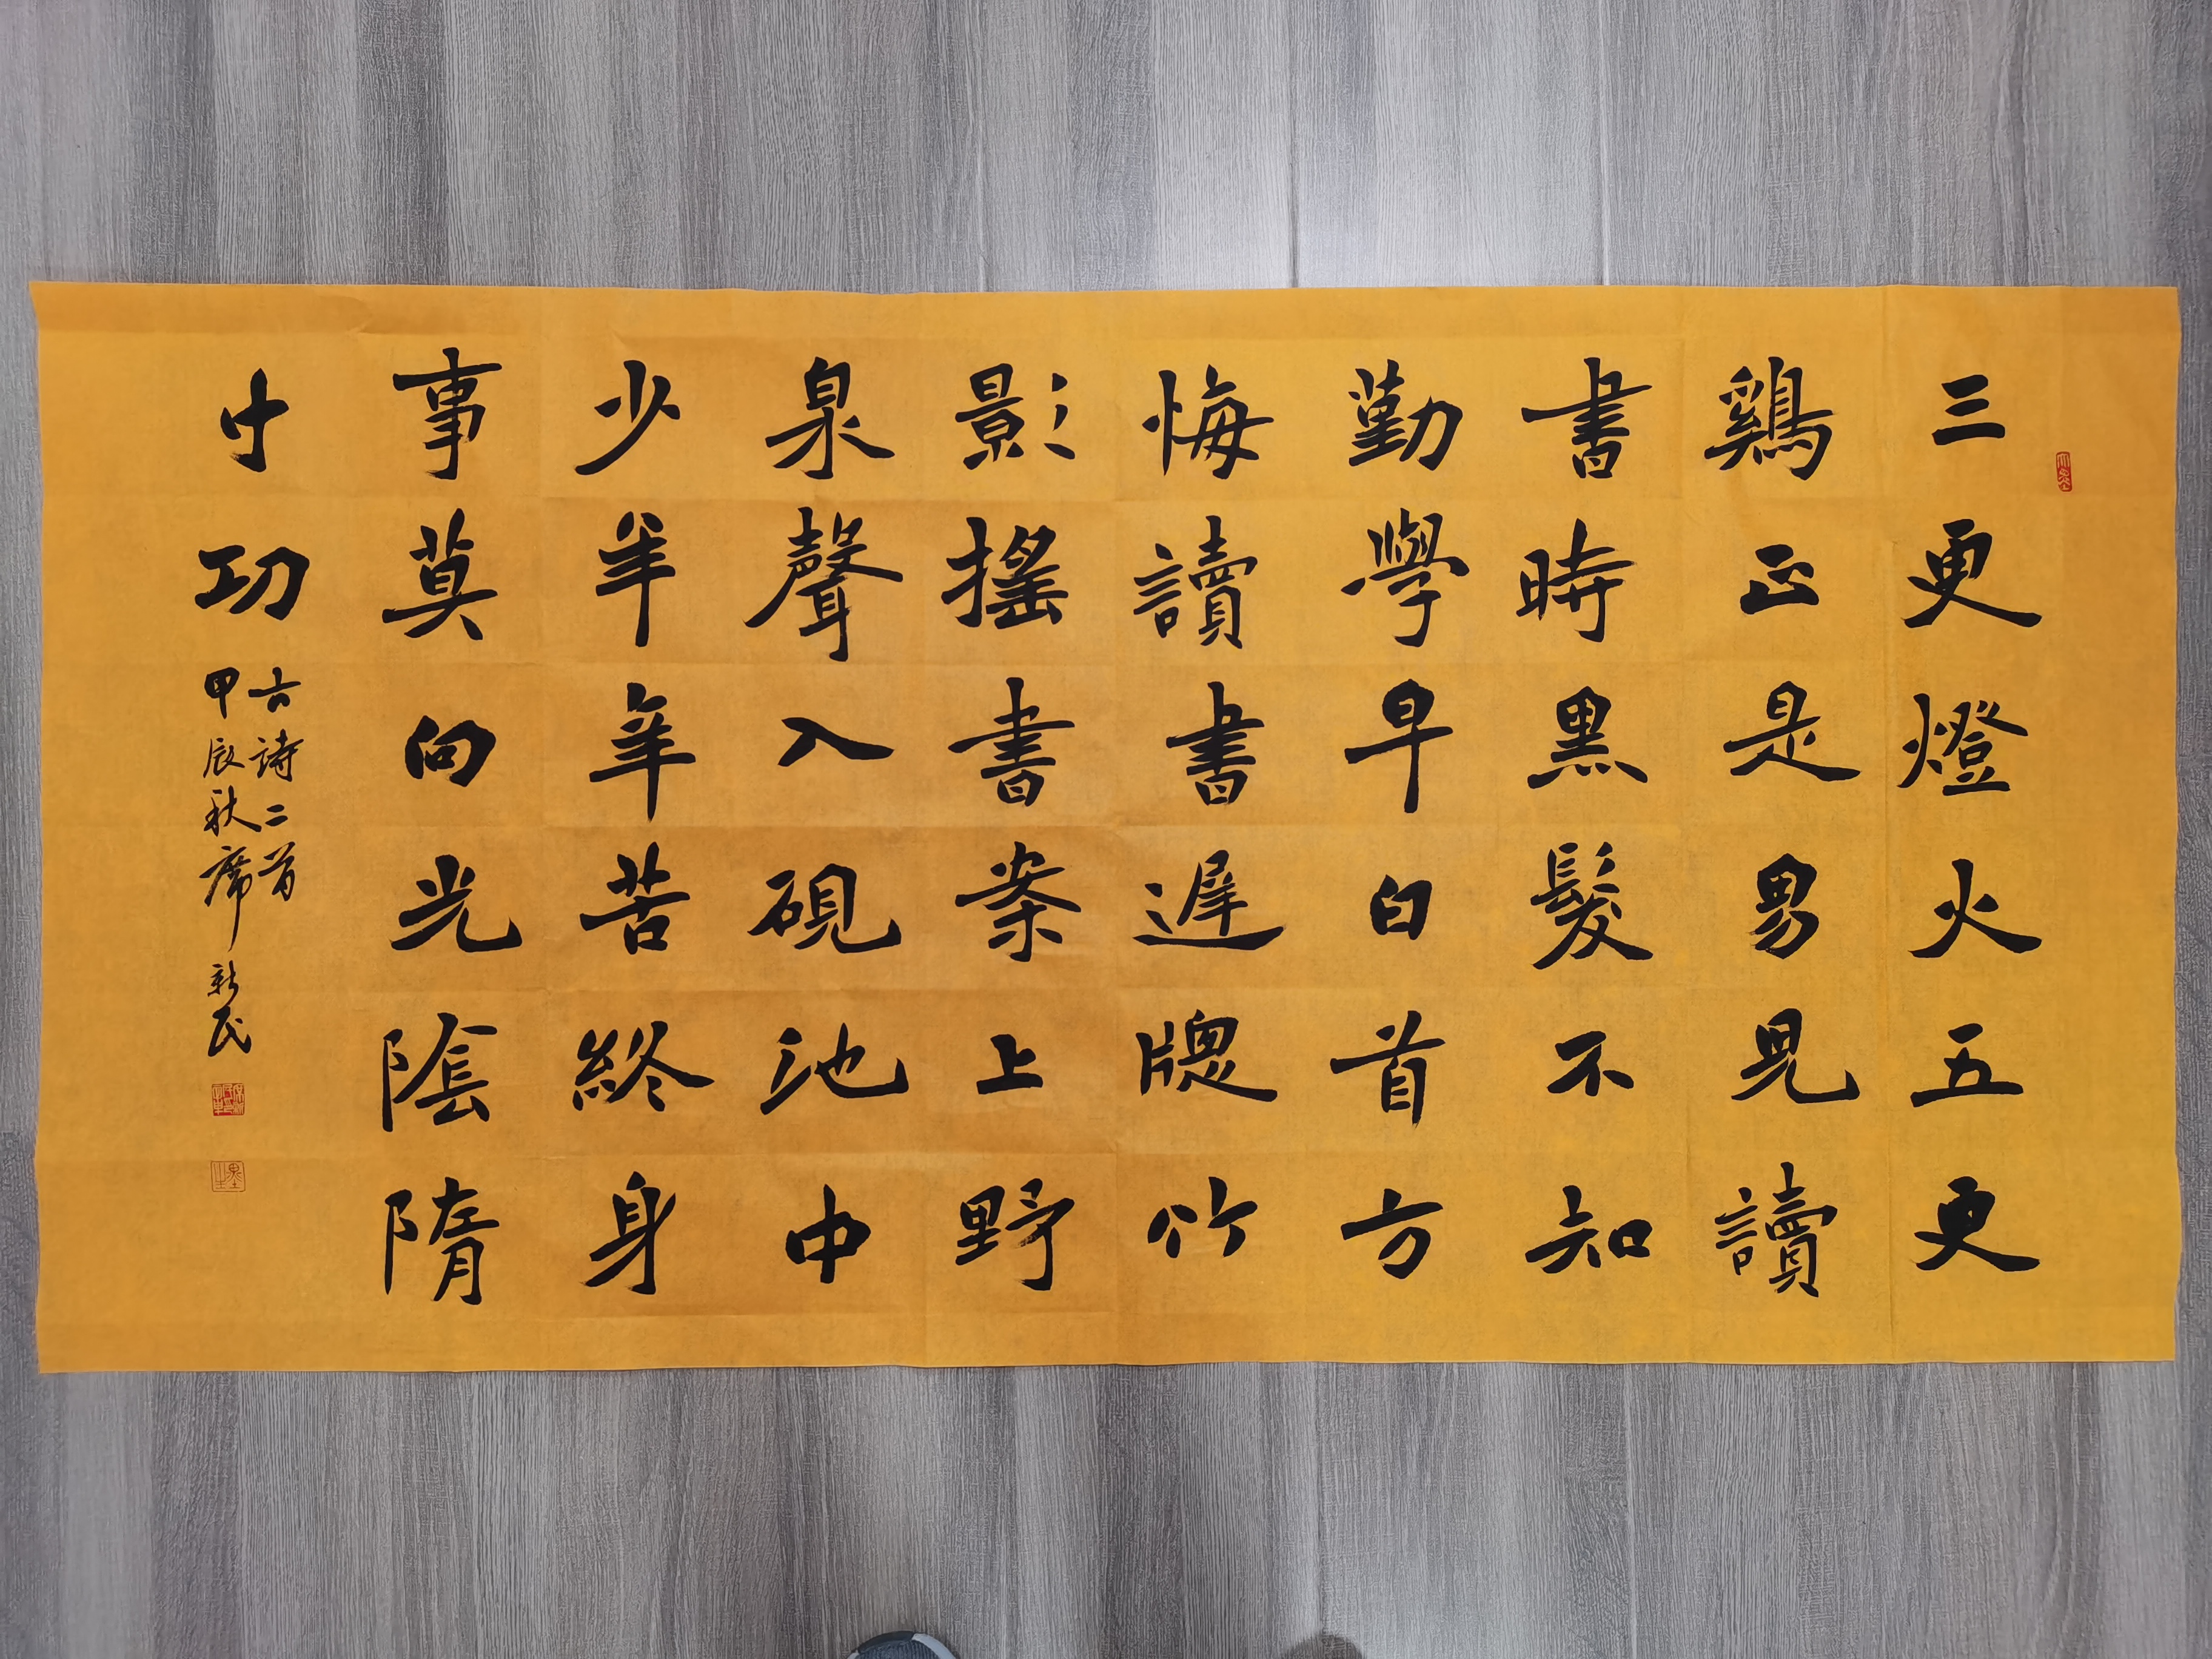 三更燈火五更
鷄正是男兒讀
書時黑髮不知
勤學早白首方
悔讀書遲牕竹
影搖書案上野
泉聲入硯池中
少年年苦終身
事莫向光陰隋
寸功
古詩二首
甲辰秋席新民